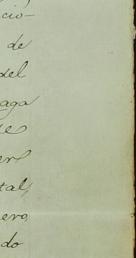 cio-
de
del
aga
se
er
tal,
ero
do